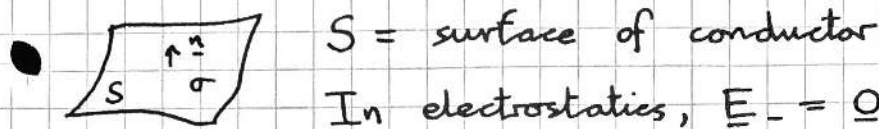 n
S σ
S = surface of conductor
In electrostatics, E_ = 0